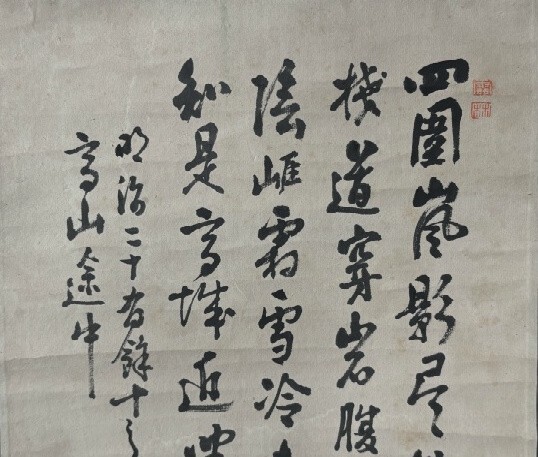 四圍嵐影尽
棧道穿岩腹
陰崕霜雪冷
知是高城近
明治二十有餘十
高山途中